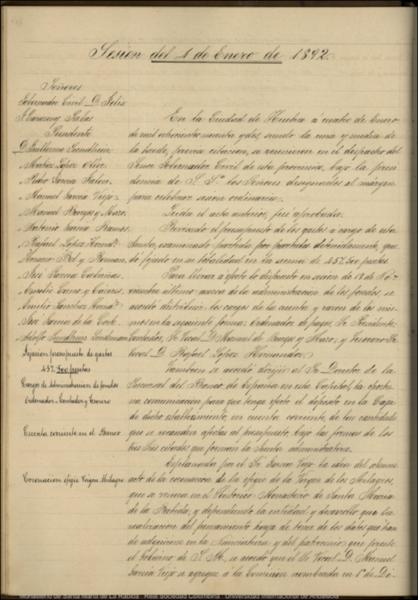 Sesion del 4 de Enero de 1892.
Señores
Gobernador Civil D. Felix
Presidente
D. Guillermo Sundheim
" Pedro Garcia
" Manuel Garcia Viejo
" Manuel de Burgos y Mazo
" Antonio Garcia Ramos
" Rafael Lopez Hernandz.
" Horacio Bel y Roman
" José Garcia Cabañas
" Aurelio Cano y Cáceres
" Emilio Sanchez
" José Garcia de la
Adolfo Sundheim Lindeman
Fijacion presupuesto de gastos
457.500 pesetas
Cargos de Administracion de fondos
Ordenador - Contador y Tesorero
Cuenta corriente en el Banco
Coronacion efigie Virgen Milagro
En la Ciudad de Huelva a cuatro de Enero
de mil ochocientos noventa y dos, siendo la una y media de
la tarde, previa citacion, se reunieron en el despacho del
Señor Gobernador Civil de esta provincia, bajo la presi-
dencia de S. Sª. los Señores designados al margen
para celebrar sesion ordinaria.
Leida el acta anterior, fué aprobada.
Revisado el presupuesto de los gastos a cargo de esta
Junta, examinado partida por partida detenidamente, que-
dó fijado en su totalidad en la suma de 457.500 pesetas.
Para llevar a efecto lo dispuesto en sesion de 18 de
viembre último acerca de la administracion de los fondos, se
acordó distribuir los cargos de la cuenta y razon de los mis-
mos en la siguiente forma: Ordenador de pagos, Sr. Presidente;
Contador, Sr. Vocal D. Manuel de Burgos y Mazo; y Tesorero Sr.
Vocal D. Rafael Lopez Hernandez.
Tambien se acordó dirijir al Sr. Director de la
Sucursal del Banco de España en esta Capital, la oportu-
na comunicacion para que tenga efecto el depósito en la Caja
de dicho establecimiento, en cuenta corriente, de las cantidades
que se recauden afectas al presupuesto, bajo las firmas de los
tres Sres. citados que forman la Junta administrativa.
Explanada por el Sr. Garcia Viejo la idea del
acto de la coronacion de la efigie de la Virgen de los Milagros,
que se venera en el Histórico Monasterio de Santa Maria
de la Rabida, y dependiendo la entidad y desarrollo que la
realizacion del pensamiento tenga de
de adquirirse en la Nunciatura y del patrocinio que preste
el Gobierno de S. M., se acordó que el Sr. Vocal D. Manuel
Garcia Viejo se agregue a la Comision nombrada en 1º de Di-